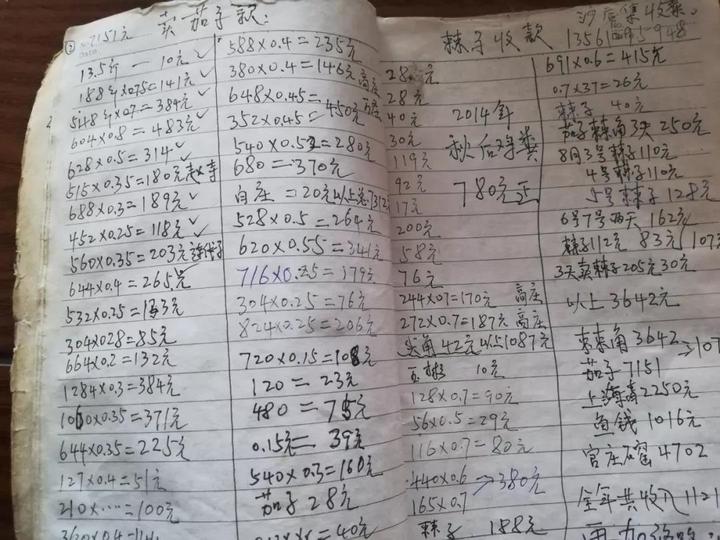 7151元 卖茄子款:
13.5斤 一 10元
188斤×0.75=141元
548斤×0.7=384元
604×0.8=483元
628×0.5=314元
516×0.35=180元
688×0.3=189元
452×0.25=118元
560×0.35=203元
644×0.4=265元
532×0.25=133元
304×0.28=85元
664×0.2=132元
1284×0.3=384元
1060×0.35=371元
644×0.35=225元
127×0.4=51元
210×……=100元
588×0.4=235元
380×0.4=146元 高庄
648×0.45=
352×0.45=450元
540×0.52=280元
680=370元
白庄 =20元以上总7312
528×0.5=264元
620×0.55=341元
716×0.25=179元
304×0.25=76元
824×0.25=206元
720×0.15=108元
120=23元
480=75元
0.15元=39元
540×0.3=160元
茄子 28元
=40元
辣子收款
28元
28元
40元
30元
119元
92元
17元
200元
58元
76元
2014年
秋后
780元正
244×0.7=170元 高庄
272×0.7=187元 高庄
尖角 42元 以上1087元
10元
128×0.7=90元
56×0.5=29元
116×0.7=80元
440×0.6 →380元
165×0.7
辣子 188元
集收款
691×0.6=415元
0.7×37=26元
辣子 40元
茄子辣角3天 250元
8月3号辣子110元
4号辣子110元
5号辣子 128元
6号7号两天 162元
辣子112元 83元 107
3天卖辣子205元30元
以上3642元
辣角3642
茄子7151
上海青2250元
鱼钱1016元
官庄 4702
全年共收入 1121